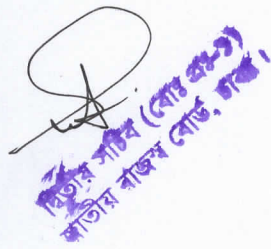 দ্বিতীয় সচিব (বোর্ড প্রশা-১)
জাতীয় রাজস্ব বোর্ড, ঢাকা।